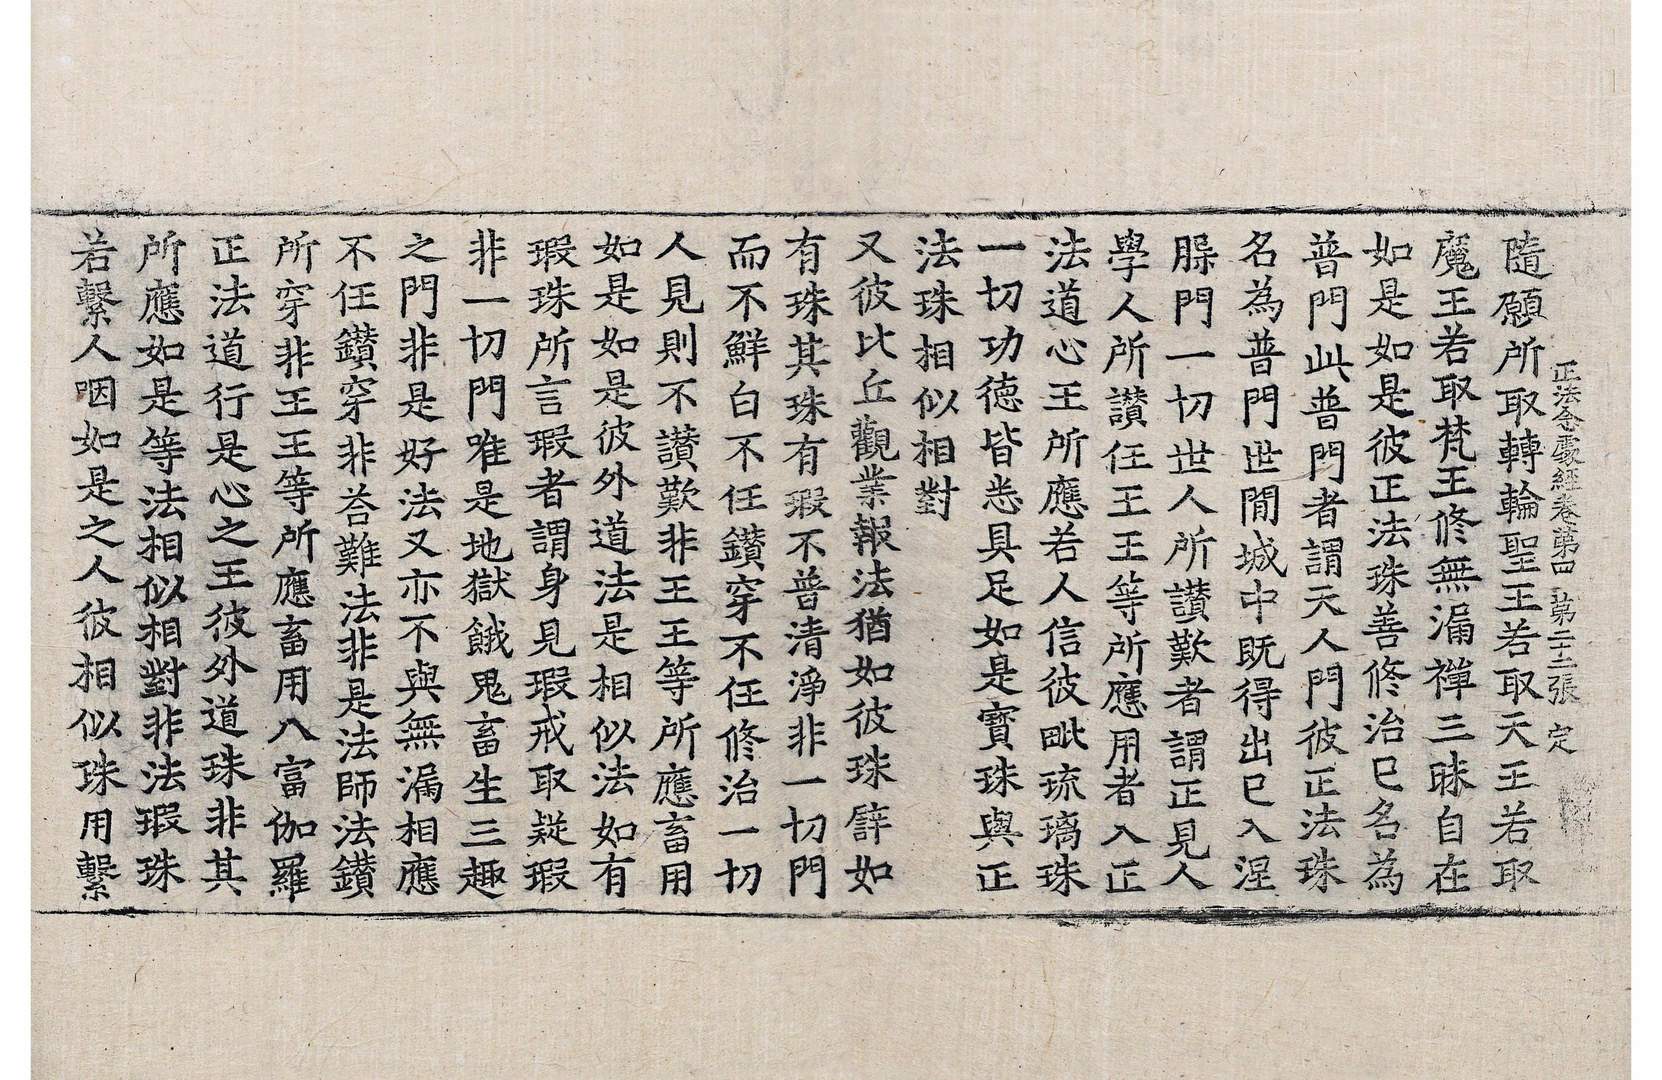 正法念處經卷第四 第二十二張 定
隨願所取轉輪聖王若取天王若取
魔王若取梵王修無漏禪三昧自在
如是如是彼正法珠善修治已名為
普門此普門者謂天人門彼正法珠
名為普門世間城中旣得出已入涅
脲門一切世人所讃歎者謂正見人
學人所讃任王王等所應用者入正
法道心王所應若人信彼毗琉璃珠
一切功德皆悉具足如是寳珠與正
法珠相似相對
又彼比丘觀業報法猶如彼珠辟如
有珠其珠有瑕不普清淨非一切門
而不鮮白不任鑚穿不任修治一切
人見則不讃歎非王王等所應畜用
如是如是彼外道法是相似法如有
瑕珠所言瑕者謂身見瑕戒取疑瑕
非一切門唯是地獄餓鬼畜生三趣
之門非是好法又亦不與無漏相應
不任鑚穿非荅難法非是法師法鑚
所穿非王王等所應畜用八富伽羅
正法道行是心之王彼外道珠非其
所應如是等法相似相對非法瑕珠
若繫人咽如是之人彼相似珠用繫